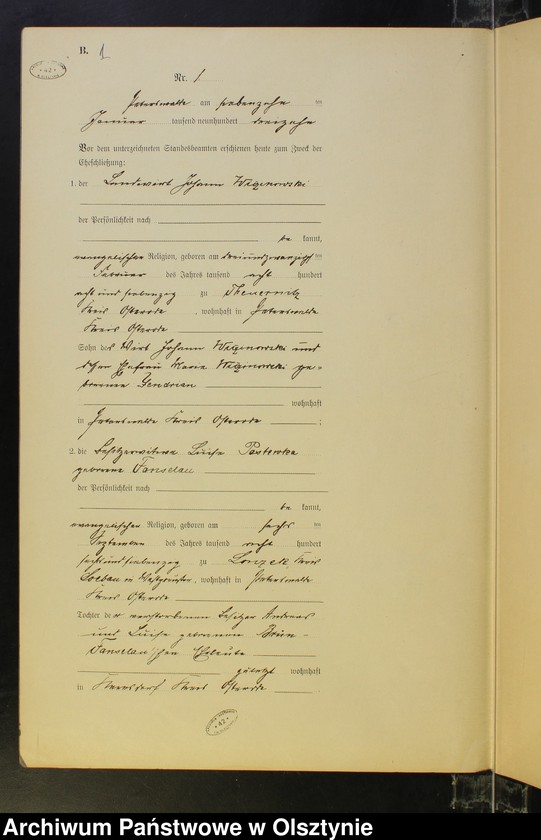 B. 1
Nr. 1
Peterswalde am siebenzehn ten
Januar tausend neunhundert dreizehn
Vor dem unterzeichneten Standesbeamten erschienen heute zum Zweck der
Eheschließung:
1. der Landwirt Johann Wigzinowski
der Persönlichkeit nach
be kannt,
evangelischer Religion, geboren am dreiundzwanzigsten
Februar des Jahres tausend acht hundert
acht und siebenzig zu Theuernitz
Kreis Osterode, wohnhaft in Peterswalde
Kreis Osterode
Sohn des Wirt Johann und
dessen Ehefrau Marie ge-
borenen
wohnhaft
in Peterswalde Kreis Osterode;
2. die Besitzerwitwe Luise Pastewka
geborene Fanselau
der Persönlichkeit nach
be kannt,
evangelischer Religion, geboren am sechs ten
September des Jahres tausend acht hundert
sechs und siebenzig zu Kreis
Loebau in Westpreußen, wohnhaft in Peterswalde
Kreis Osterode
Tochter der verstorbenen Besitzer Andreas
und Luise geborenen
Fanselau'schen Eheleute
zuletzt wohnhaft
in Kreis Osterode
Archiwum Państwowe w Olsztynie